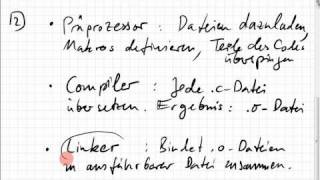 12) • Präprozessor : Dateien dazuladen,
Makros definieren, Teile des Codes
überspringen
• Compiler : Jede .c-Datei
übersetzen. Ergebnis: .o-Datei
• Linker : Bindet .o-Dateien
in ausführbarer Datei zusammen.